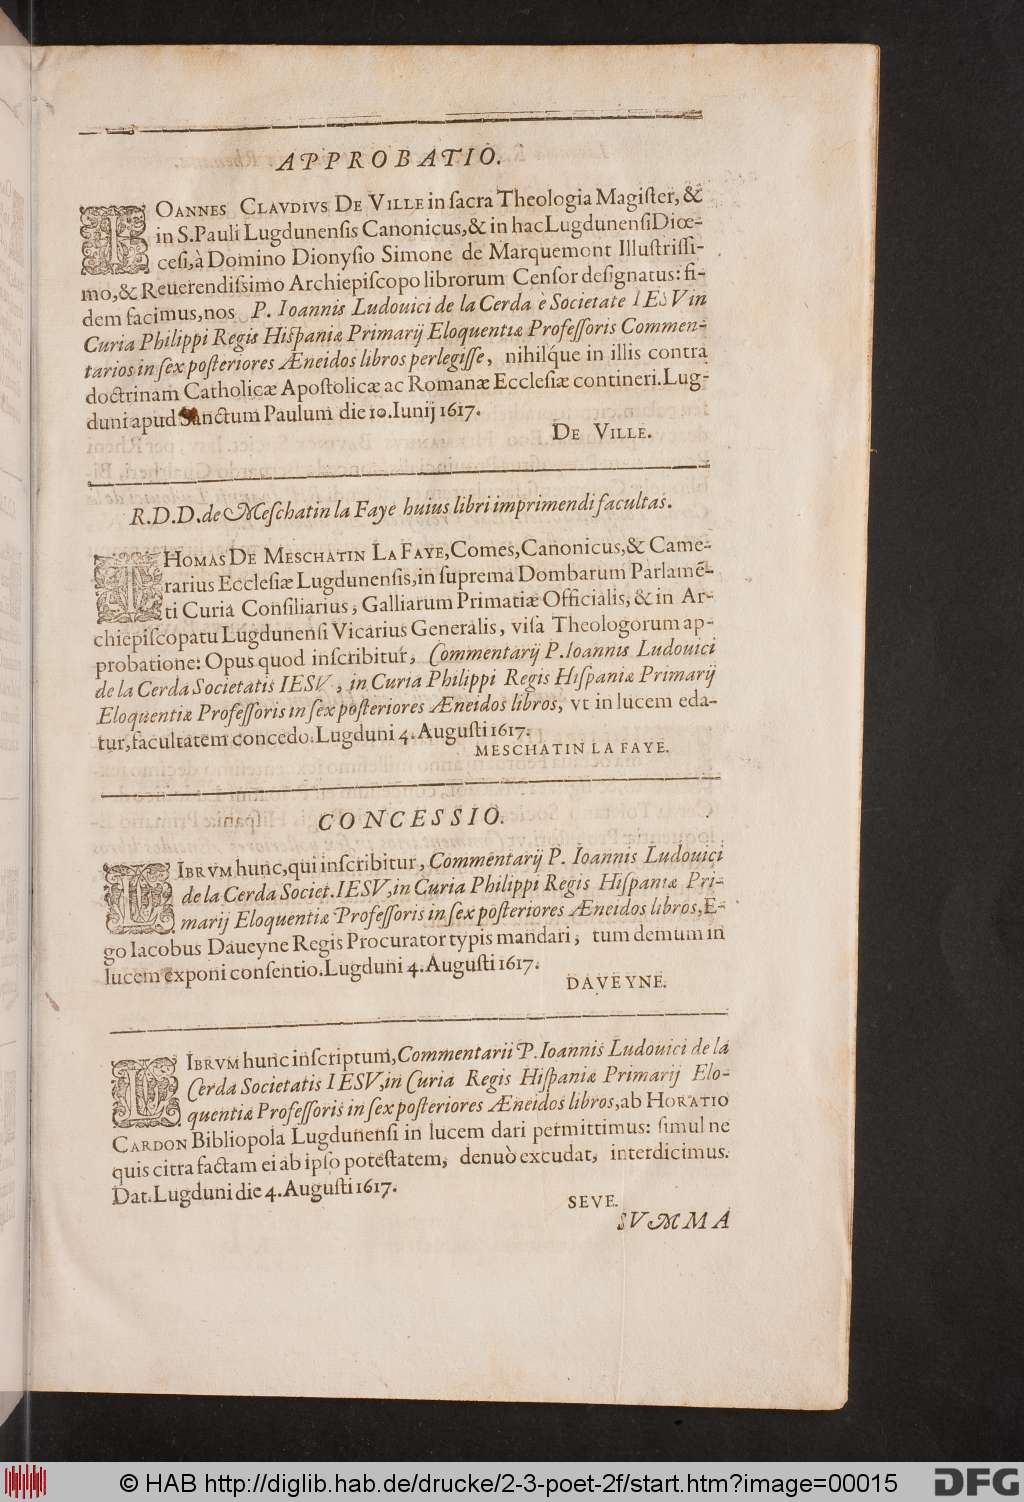 APPROBATIO.
IOANNES CLAVDIVS DE VILLE in ſacra Theologia Magiſter, &
in S. Pauli Lugdunenſis Canonicus, & in hac Lugdunenſi Diœ-
ceſi, à Domino Dionyſio Simone de Marquemont Illuſtriſſi-
mo, & Reuerendiſsimo Archiepiſcopo librorum Cenſor deſignatus: fi-
dem facimus, nos P. Ioannis Ludouici de la Cerda è Societate IESV in
Curia Philippi Regis Hiſpaniæ Primarij Eloquentiæ Profeſſoris Commen-
tarios in ſex poſteriores Æneidos libros perlegiſſe, nihilq́ue in illis contra
doctrinam Catholicæ Apoſtolicæ ac Romanæ Eccleſiæ contineri. Lug-
duni apud Sanctum Paulum die 10. Iunij 1617.
DE VILLE.
R. D. D. de Meſchatin la Faye huius libri imprimendi facultas.
THOMAS DE MESCHATIN LA FAYE, Comes, Canonicus, & Came-
rarius Eccleſiæ Lugdunenſis, in ſuprema Dombarum Parlamē-
ti Curia Conſiliarius, Galliarum Primatiæ Officialis, & in Ar-
chiepiſcopatu Lugdunenſi Vicarius Generalis, viſa Theologorum ap-
probatione: Opus quod inſcribitur, Commentarij P. Ioannis Ludouici
de la Cerda Societatis IESV, in Curia Philippi Regis Hiſpaniæ Primarij
Eloquentiæ Profeſſoris in ſex poſteriores Æneidos libros, vt in lucem eda-
tur, facultatem concedo. Lugduni 4. Auguſti 1617.
MESCHATIN LA FAYE.
CONCESSIO.
LIBRVM hunc, qui inſcribitur, Commentarij P. Ioannis Ludouici
de la Cerda Societ. IESV, in Curia Philippi Regis Hiſpaniæ Pri-
marij Eloquentiæ Profeſſoris in ſex poſteriores Æneidos libros, E-
go Iacobus Daueyne Regis Procurator typis mandari, tum demum in
lucem exponi conſentio. Lugduni 4. Auguſti 1617.
DAVEYNE.
LIBRVM hunc inſcriptum, Commentarii P. Ioannis Ludouici de la
Cerda Societatis IESV, in Curia Regis Hiſpaniæ Primarij Elo-
quentiæ Profeſſoris in ſex poſteriores Æneidos libros, ab HORATIO
CARDON Bibliopola Lugdunenſi in lucem dari permittimus: ſimul ne
quis citra factam ei ab ipſo poteſtatem, denuò excudat, interdicimus.
Dat. Lugduni die 4. Auguſti 1617.
SEVE.
SVMMA
© HAB http://diglib.hab.de/drucke/2-3-poet-2f/start.htm?image=00015
DFG